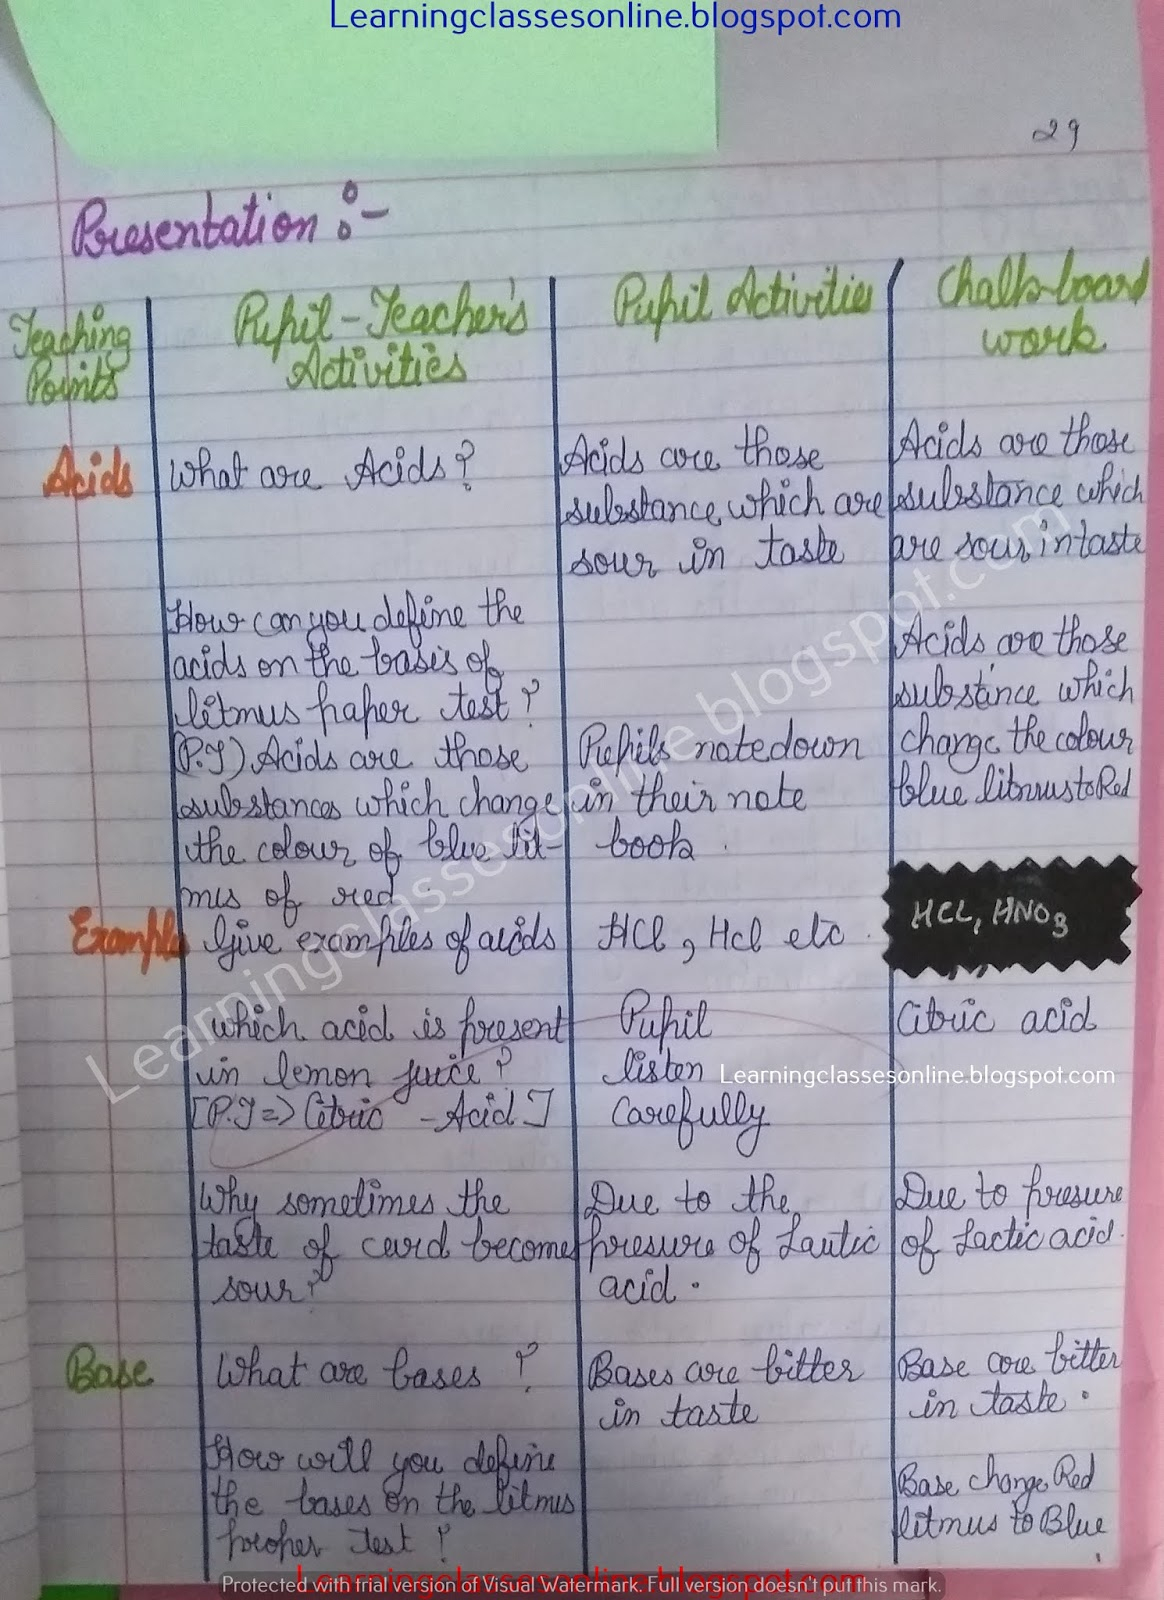 Learningclassesonline.blogspot.com
29
Presentation :-
Teaching
Points
Pupil-Teacher's
Activities
Pupil Activities
Chalk-board
work
Acids
What are Acids?
Acids are those
substance, which are
sour in taste
Acids are those
substance which
are sour in taste
How can you define the
acids on the basis of
litmus paper test?
(P.T) Acids are those
substances which change
the colour of blue lit-
mis of red.
Pupils note down
in their note
book.
Acids are those
substance which
change the colour
blue litmus to Red
Example
Give examples of acids
HCl, Hcl etc.
HCL, HNO3
which acid is present
in lemon juice?
[P.T => Citric - Acid]
Pupil
listen
Carefully
Citric acid
Learningclassesonline.blogspot.com
Why sometimes the
taste of curd become
sour?
Due to the
presure of Lautic
acid.
Due to presure
of Lactic acid.
Base
What are bases?
Bases are bitter
in taste
Base are bitter
in taste.
How will you define
the bases on the litmus
proper test?
Base change Red
litmus to Blue
Learningclassesonline.blogspot.com
Learningclassesonline.blogspot.com
Protected with trial version of Visual Watermark. Full version doesn't put this mark.